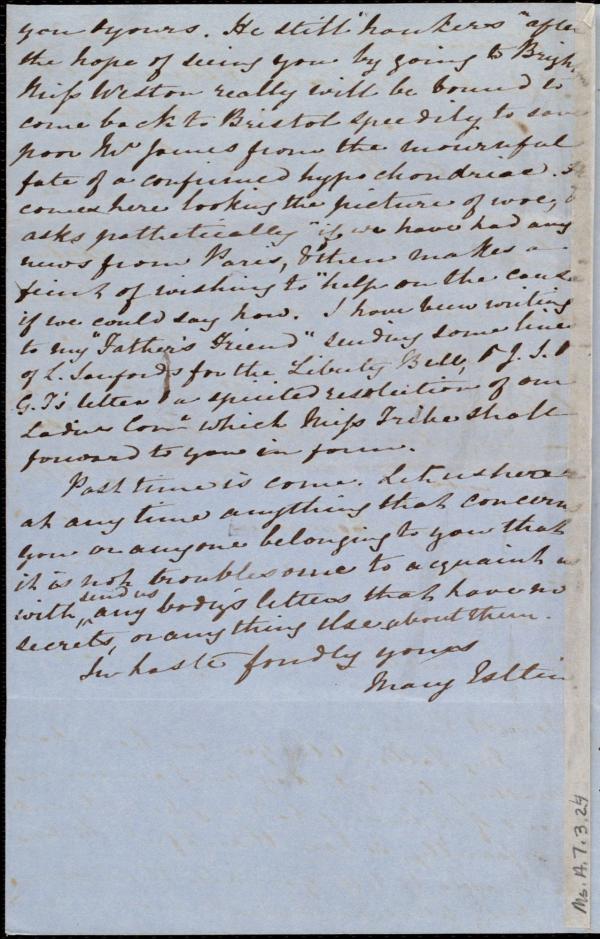 you & yours. He still "hankers" after
the hope of seeing you by going to Brigh
Miss Weston really will be bound to
come back to Bristol speedily to save
poor Mr James from the mournful
fate of a confirmed hypochondriac. He
comes here looking the picture of woe, &
asks pathetically "if we have had any
news from Paris, & then makes a
feint of wishing to "help on the cause
if we could say how. I have been writing
to my "Father's Friend" sending some lines
of L. Sanford's for the Liberty Bell,
G. T's letter & a spirited resolution of our
Ladies Comee which Miss Tribe shall
forward to you in form.
Post time is come. Let us hear
at any time anything that concerns
you or anyone belonging to you that
it is not troublesome to acquaint us
with, send us any body's letters that have no
secrets, or anything else about them.
In haste fondly yours
Mary Estlin
Ms. A. 7. 3. 24